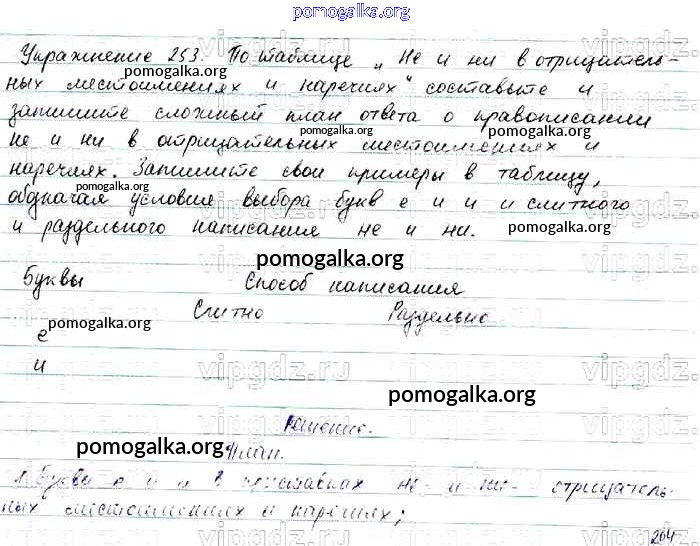 pomogalka.org
Упражнение 253. По таблице „Не и ни в отрицатель-
ных местоимениях и наречиях" составьте и
pomogalka.org
запишите сложный план ответа о правописании
pomogalka.org
не и ни в отрицательных местоимениях и
pomogalka.org
наречиях. Запишите свои примеры в таблицу,
pomogalka.org
обозначая условия выбора букв е и и и слитного
и раздельного написания не и ни. pomogalka.org
pomogalka.org
Буквы Способ написания
Слитно Раздельно
pomogalka.org
е
и
pomogalka.org
Решение.
pomogalka.org
План.
1. Буквы е и и в приставках не- и ни- отрицатель-
ных местоимениях и наречиях;
204
vipgdz.ru